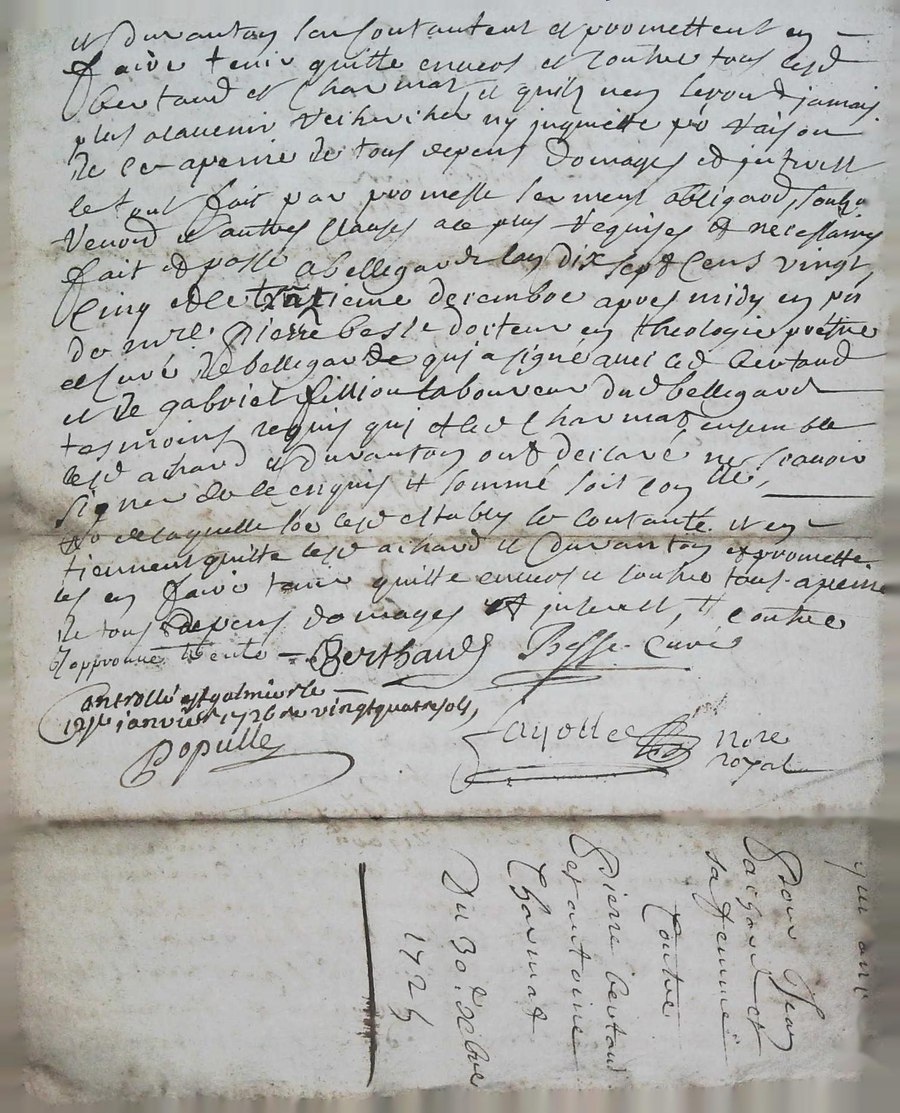 et Duranton sen contantent et promettent en
faire tenir quitte envers et contre tous lesd
Bertaud et Charmat, et quils nen seront jamais
plus alavenir recherches ny inquiette par raison
de ce apeine de tous depens domages et jnterest
le tout fait par promesse serment obligaõn, soubz
Renonõn et autres clauses ace plus requises et necessaires
fait et passé abellegarde lan dix sept cens vingt
cinq et le trentieme decembre apres midy en pnce
de mre Pierre Besse docteur en theologie prêtre
et curé de bellegarde qui a signé avec led bertaud
et de gabriel fillion laboureur dud bellegarde
tesmoins requis qui et led Charmat ensemble
lesd achard et duranton ont declaré ne scavoir
signer de ce enquis et sommé soit con lle,
de laquelle lesd establys se contante. et en
tiennent quitte lesd achard et Duranton et promette
les en faire tenir quitte envers et contre tous apeine
de tous depens domages et interest, et contre
Japprouve trente Berthaud Besse Curé
Controllé a st galmier le
12e janvier 1726 Re vingt quatre sols,
Populle
Fayolle Nore
royal
qui ont
Pour Jean
achard et
sa femme
Contre
Pierre bertaud
et antoine
Charmat
Du 30e Xbre
1725